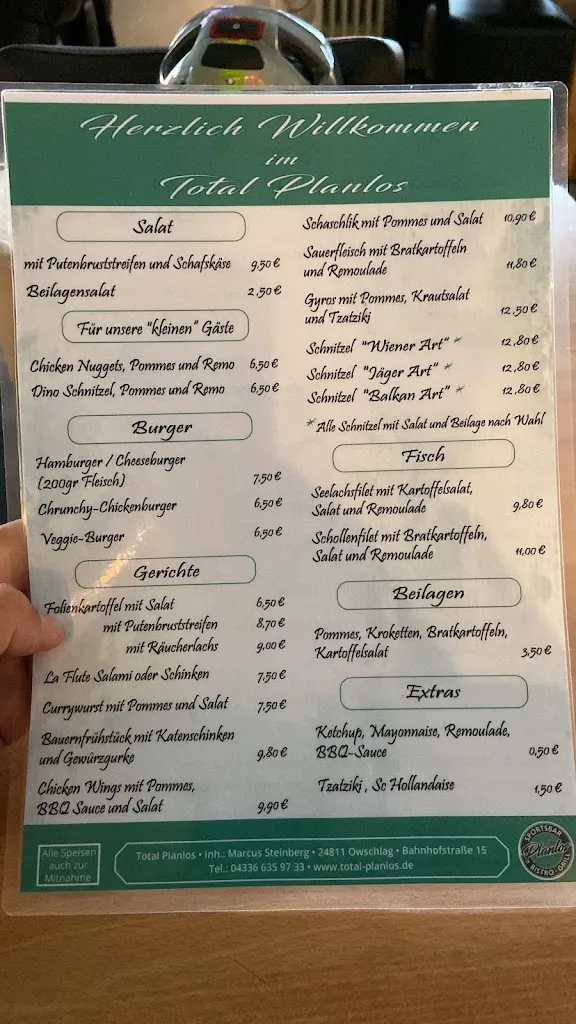 Herzlich Willkommen
im
Total Planlos
Salat
mit Putenbruststreifen und Schafskäse 9,50 €
Beilagensalat 2,50 €
Für unsere "kleinen" Gäste
Chicken Nuggets, Pommes und Remo 6,50 €
Dino Schnitzel, Pommes und Remo 6,50 €
Burger
Hamburger / Cheeseburger
(200gr Fleisch) 7,50 €
Chrunchy-Chickenburger 6,50 €
Veggie-Burger 6,50 €
Gerichte
Folienkartoffel mit Salat 6,50 €
mit Putenbruststreifen 8,70 €
mit Räucherlachs 9,00 €
La Flute Salami oder Schinken 7,50 €
Currywurst mit Pommes und Salat 7,50 €
Bauernfrühstück mit Katenschinken
und Gewürzgurke 9,80 €
Chicken Wings mit Pommes,
BBQ Sauce und Salat 9,90 €
Schaschlik mit Pommes und Salat 10,90 €
Sauerfleisch mit Bratkartoffeln
und Remoulade 11,80 €
Gyros mit Pommes, Krautsalat
und Tzatziki 12,50 €
Schnitzel "Wiener Art" * 12,80 €
Schnitzel "Jäger Art" * 12,80 €
Schnitzel "Balkan Art" * 12,80 €
* Alle Schnitzel mit Salat und Beilage nach Wahl
Fisch
Seelachsfilet mit Kartoffelsalat,
Salat und Remoulade 9,80 €
Schollenfilet mit Bratkartoffeln,
Salat und Remoulade 11,00 €
Beilagen
Pommes, Kroketten, Bratkartoffeln,
Kartoffelsalat 3,50 €
Extras
Ketchup, Mayonnaise, Remoulade,
BBQ-Sauce 0,50 €
Tzatziki , Sc Hollandaise 1,50 €
Alle Speisen
auch zur
Mitnahme
Total Planlos • Inh.: Marcus Steinberg • 24811 Owschlag • Bahnhofstraße 15
Tel.: 04336 635 97 33 • www.total-planlos.de
SPORTSBAR
Planlos
BISTRO • GRILL